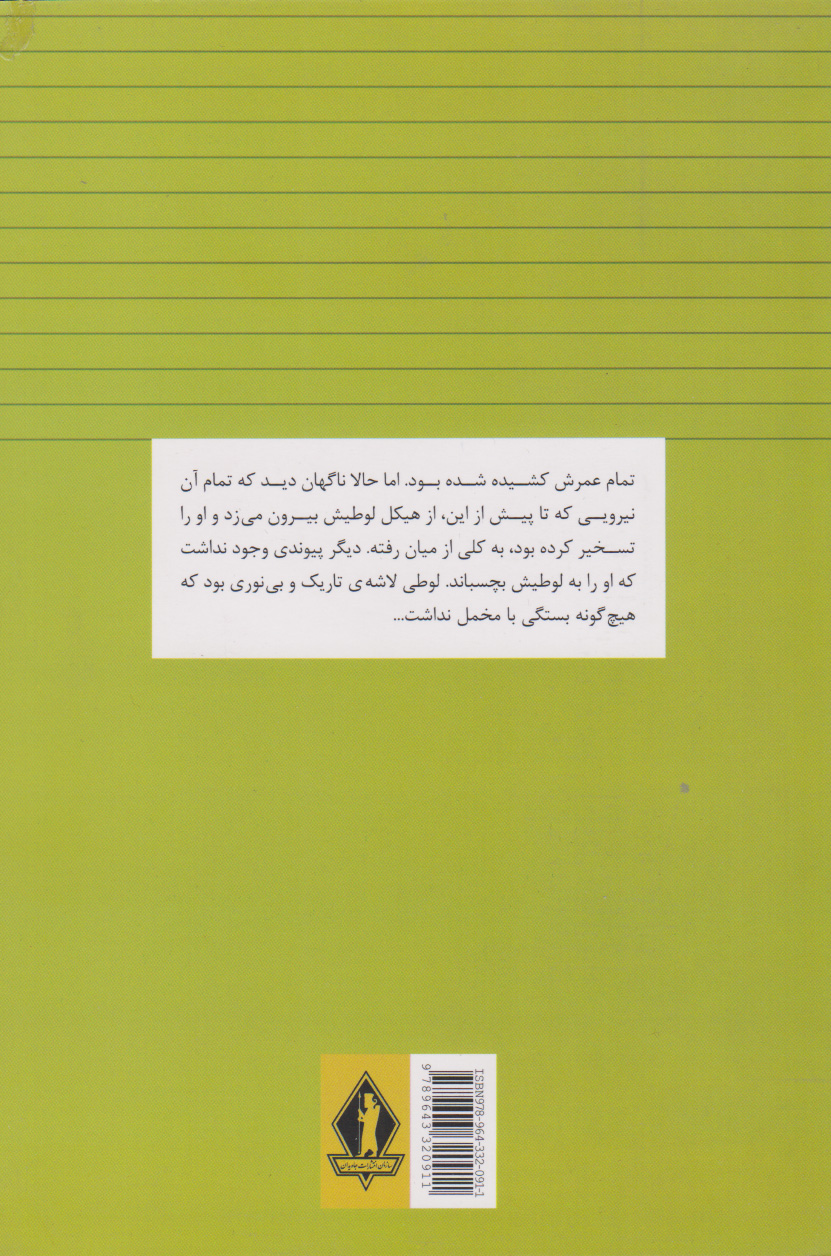 تمام عمرش کشیده شده بود. اما حالا ناگهان دید که تمام آن
نیرویی که تا پیش از این، از هیکل لوطیش بیرون می‌زد و او را
تسخیر کرده بود، به کلی از میان رفته. دیگر پیوندی وجود نداشت
که او را به لوطیش بچسباند. لوطی لاشه‌ی تاریک و بی‌نوری بود که
هیچ‌گونه بستگی با مخمل نداشت...
ISBN978-964-332-091-1
9 789643 320911
سازمان انتشارات جاویدان